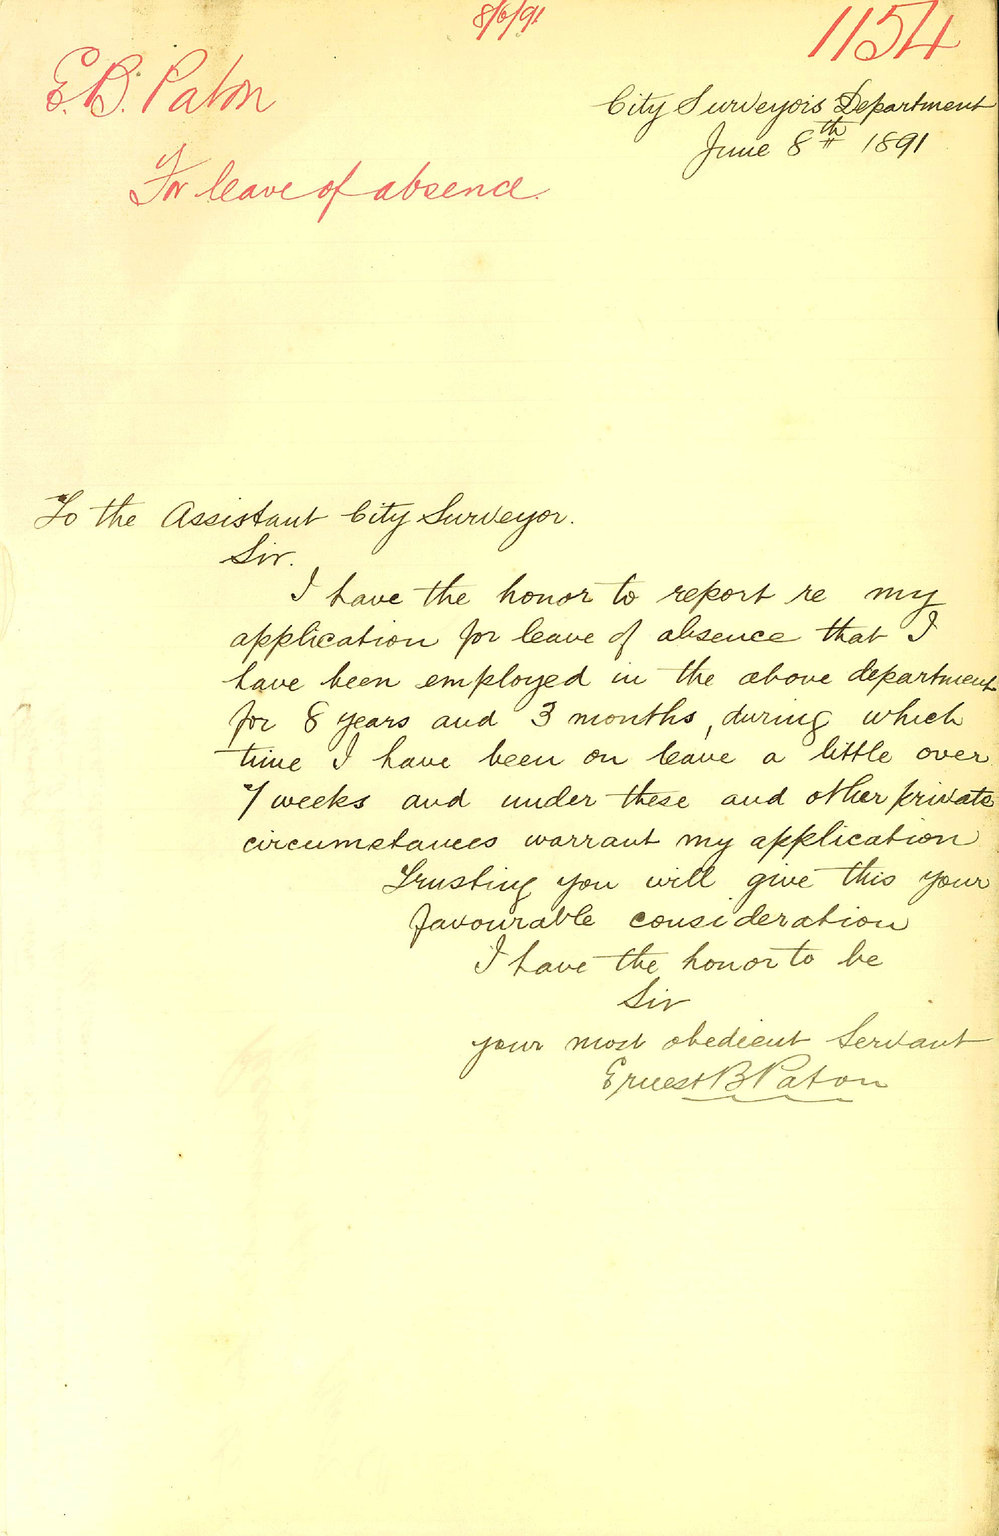 8/6/91
1154
E.B. Paton
City Surveyors Department
June 8th 1891
For leave of absence.
To the Assistant City Surveyor.
Sir.
I have the honor to report re my
application for leave of absence that I
have been employed in the above department
for 8 years and 3 months, during which
time I have been on leave a little over
7 weeks and under these and other private
circumstances warrant my application
Trusting you will give this your
favourable consideration
I have the honor to be
Sir
your most obedient Servant
Ernest B Paton